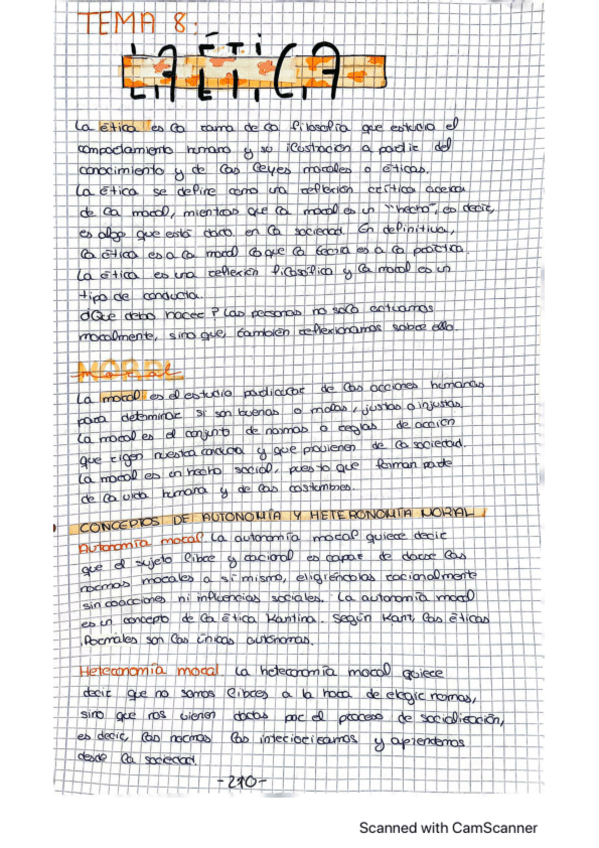 TEMA 8:
LA ÉTICA
La ética es la rama de la filosofía que estudia el
comportamiento humano y su ilustración a partir del
conocimiento y de las leyes morales o éticas.
La ética se define como una reflexión crítica acerca
de la moral, mientras que la moral es un "hecho", es decir,
es algo que está dado en la sociedad. En definitiva,
la ética es a la moral lo que la teoría es a la práctica.
La ética es una reflexión filosófica y la moral es un
tipo de conducta.
¿Que debo hacer? Las personas no solo actuamos
moralmente, sino que, también reflexionamos sobre ello.
MORAL
La moral es el estudio particular de las acciones humanas
para determinar si son buenas o malas, justas o injustas.
La moral es el conjunto de normas o reglas de acción
que rigen nuestra conducta y que provienen de la sociedad.
La moral es un hecho social, puesto que forman parte
de la vida humana y de las costumbres.
CONCEPTOS DE AUTONOMÍA Y HETERONOMÍA MORAL
Autonomía moral La autonomía moral quiere decir
que el sujeto libre y racional es capaz de darse las
normas morales a si mismo, eligiéncolas racionalmente
sin coacciones ni influencias sociales. La autonomía moral
es un concepto de la ética Kantina. Según Kant, las éticas
Formales son las únicas autónomas.
Heteronomía moral La heteronomía moral quiere
decir que no somos libres a la hora de elegir normas,
sino que nos vienen dadas por el proceso de socialización,
es decir, las normas las interiorizamos y aprendemos
desde la sociedad.
-210-
Scanned with CamScanner